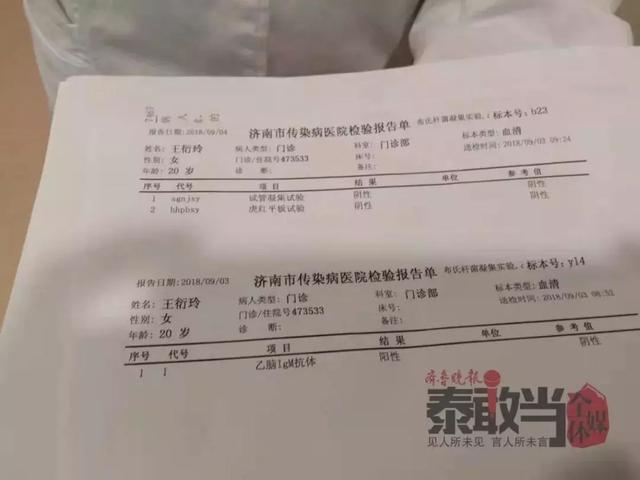 济南市传染病医院检验报告单 布氏杆菌凝集实验 标本号: b23
报告日期:2018/09/04
姓名: 王衍玲 病人类型: 门诊 科室: 门诊部 标本类型: 血清
性别: 女 门诊/住院号473533 床号: 送检时间: 2018/09/03 09:24
年龄: 20 岁 诊 断: 备注:
序号 代号 项目 结果 单位 参考值
1 sgnjsy 试管凝集试验 阴性 阴性
2 hhpbsy 虎红平板试验 阴性 阴性
报告日期:2018/09/03 济南市传染病医院检验报告单 布氏杆菌凝集实验 标本号: y14
姓名: 王衍玲 病人类型: 门诊 科室: 门诊部 标本类型: 血清
性别: 女 门诊/住院号473533 床号: 送检时间: 2018/09/03 08:52
年龄: 20 岁 诊 断: 备注:
序号 代号 项目 结果 单位 参考值
1 1 乙脑IgM抗体 阳性 阴性
齐鲁晚报
泰敢当全媒体
见人所未见 言人所未言